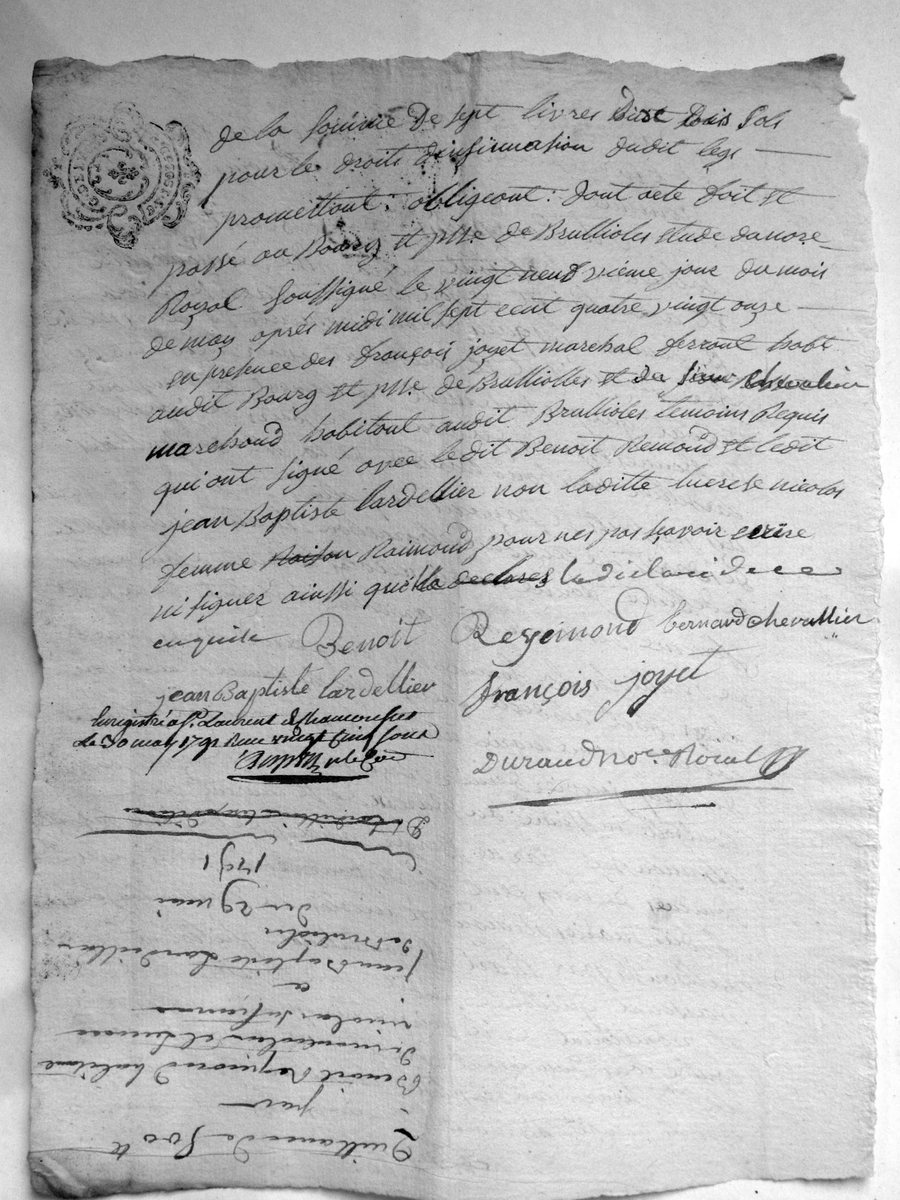 de la somme de sept livres dixt trois sols
pour le droits d'insinuation dudit legs
promettont: obligeont: dont acte foit et
passé au Bourg et psse de Brullioles etude du nore
Royal soussigné le vingt neuf vieme jour du mois
de may aprés midi mil sept cent quatre vingt onze
en presence des françois joyet marechal ferrant habt
audit Bourg et psse de Brulliolles et de sieur chevalier
marchand habitout audit Brullioles temoins Requis
qui ont signé avec ledit Benoit Remond et ledit
jean Baptiste lardellier non laditte lucrese nicolas
femme Raimond pour nes pas savoir ecrire
ni signer ainssi quella declaré de ce
enquise Benoit Reyemond bernard chevallier
jean Baptiste lardellier françois joyet
Enregistré a St. Laurent de chamousset
le 30 may 1791 Reçu vingt cinq sous
Durand no.re Roial
Quittance de 800 tt
par
Benoit Reymond habitant
et lucrece
nicolas sa femme
a
jean Baptiste Lardellier
de Brulioles
du 29 mai
1791